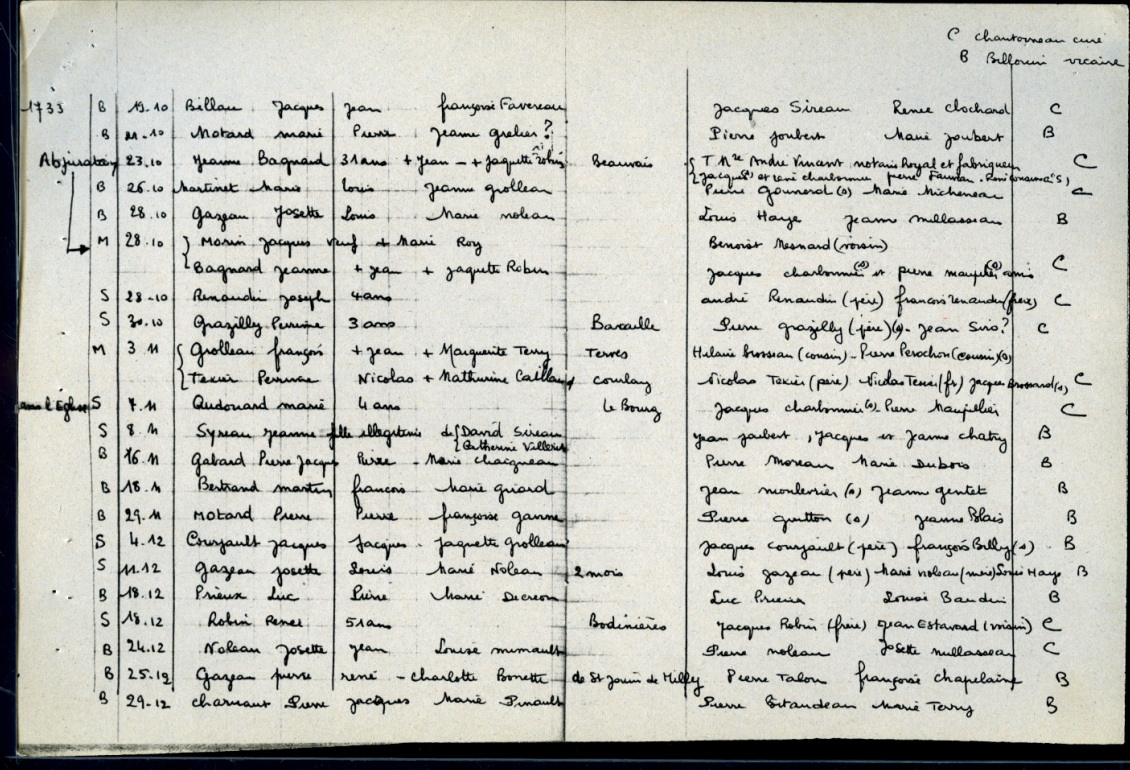 C chantonneau curé
B Billouin vicaire
1733 B 19.10 Billau Jacques Jean françoise Favereau Jacques Sireau Renee Clochard C
B 21.10 Motard marie Pierre Jeanne grelier? Pierre Joubert Marie Joubert B
Abjuration 23.10 Jeanne Bagnard 31 ans + Jean - + Jaquette Robin Beauvais { T Me André Vincent notaire Royal et fabriqueur C
Jacques et rené charbonnie pierre
B 26.10 Martinet Marie Louis Jeanne grolleau Pierre gounord (s) Marie Micheneau C
B 28.10 Gazeau Josette Louis Marie noleau Louis Haye Jeanne millasseau B
M 28.10 { Morin Jacques veuf + Marie Roy Benoist Mesnard (voisin)
Bagnard Jeanne + Jean + Jaquette Robin Jacques charbonnié (s) et pierre maupillié (s) amis C
S 28-10 Renaudin Joseph 4 ans andré Renaudin (père) francois renaudin (frere) C
S 30.10 Grazilly Perrine 3 ans Baraille Pierre grazilly (père) (s) - Jean Siro? C
M 3 11 { Grolleau françois + Jean + Marguerite Terry Terves Hilaire brosseau (cousin) - Pierre Perochon (cousin) (s)
Texier Perrine Nicolas + Mathurine Caillaud courlay Nicolas Texier (père) Nicolas Texier (fr) Jacques Brossard (s) C
dans l'Eglise S 7.11 Audouard marie 4 ans Le Bourg Jacques charbonnié (s) - Pierre Maupillier C
S 8.11 Syreau Jeanne fille illegitime de { David Sireau Jean Joubert, Jacques et Jeanne chatry B
Catherine Valleret
B 16.11 Gabard Pierre Jacques Pierre - Marie chaigneau Pierre Moreau Marie Dubois B
B 18.11 Bertrand martin francois Marie giraud Jean monlevrier (s) Jeanne gentet B
B 29.11 Motard Pierre Pierre françoise Pierre guitton (s) Jeanne Blais B
S 4.12 Courjault Jacques Jacques - Jaquette grolleau Jacques courjault (père) françois Billy (s) B
S 11.12 Gazeau Josette Louis Marie Noleau 2 mois Louis gazeau (père) Marie noleau (mère) Louis Haye B
B 18.12 Prieux Luc Pierre Marie Decreon Luc Prieux Louise Baudin B
S 18.12 Robin Renee 51 ans Bodinières Jacques Robin (frère) Jean Estavard (voisin) C
B 24.12 Noleau Josette Jean Louise mimault Pierre noleau Josette millasseau C
B 25.12 Gazeau pierre rené - Charlotte Bonette de St Jouin de Milly Pierre Talon françoise chapelaine B
B 29-12 charruaut Pierre Jacques Marie Pinault Pierre Bitaudeau Marie Terry B